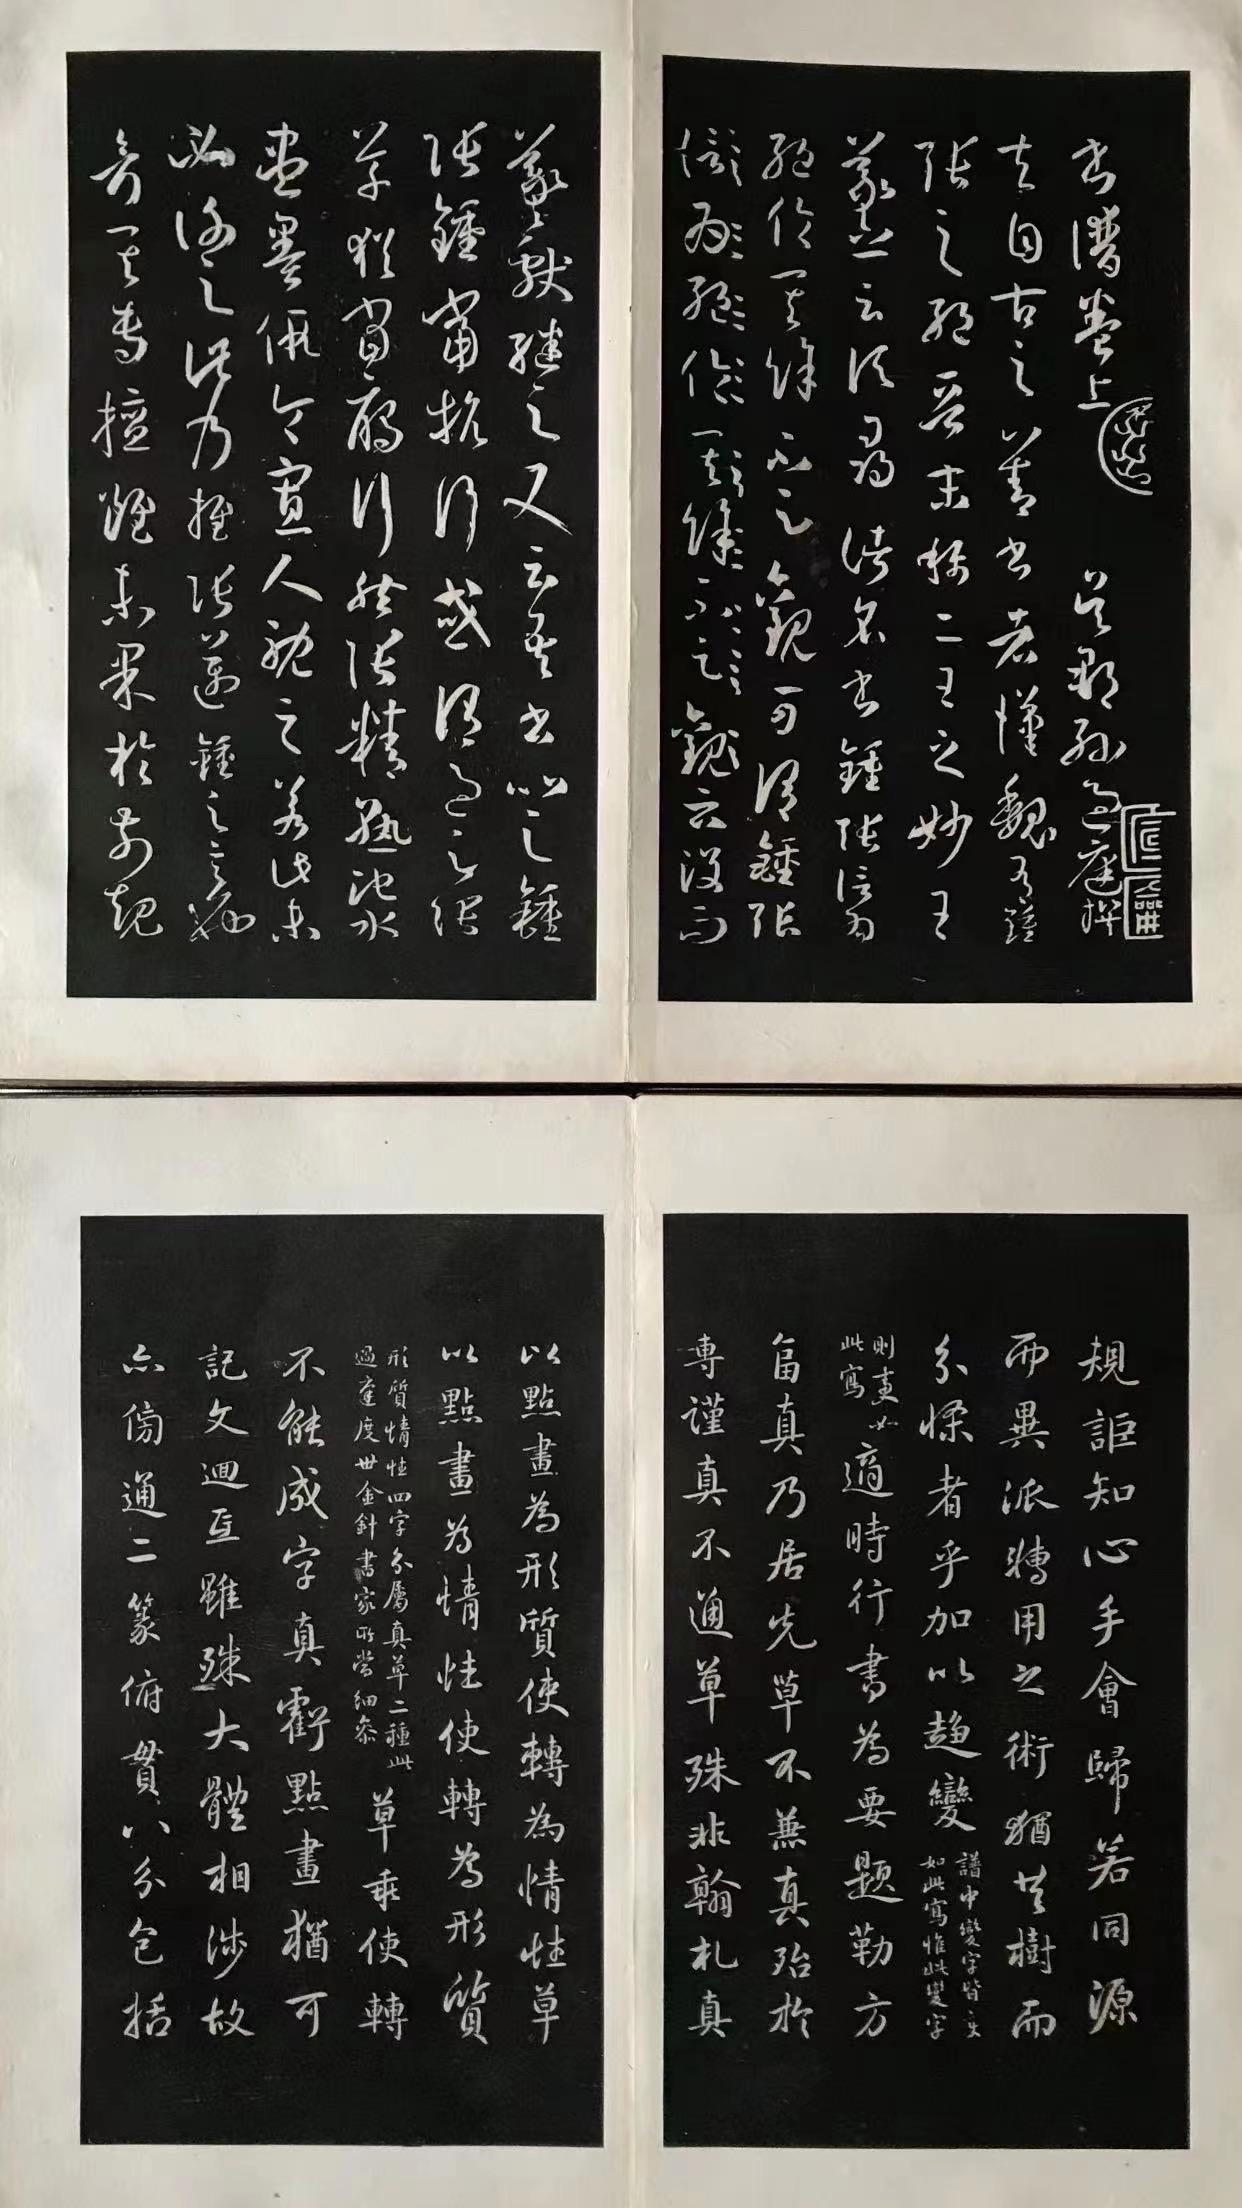 書譜卷上　吳郡孫過庭撰
夫自古之善書者漢魏有鍾
張之絕晉末稱二王之妙王
羲之云頃尋諸名書鍾張信為
絕倫其餘不足觀可謂鍾張
信為絕倫其餘不足觀云沒而
羲獻繼之又云吾書比之鍾
張鍾當抗行或謂過之張
草猶當鴈行然張精熟池水
盡墨假令寡人耽之若此未
必謝之此乃推張邁鍾之意
考其專擅雖未果於前規
規詎知心手會歸若同源
而異派轉用之術猶共樹而
分條者乎加以趨變
譜中變字皆
如此寫惟此變字
則
此寫
適時行書為要題勒方
畐真乃居先草不兼真殆於
專謹真不通草殊非翰札真
以點畫為形質使轉為情性草
以點畫為情性使轉為形質
形質情性四字分屬真草二種此
過庭度世金針書家所當細參
草乖使轉
不能成字真虧點畫猶可
記文迴互雖殊大體相涉故
亦傍通二篆俯貫八分包括